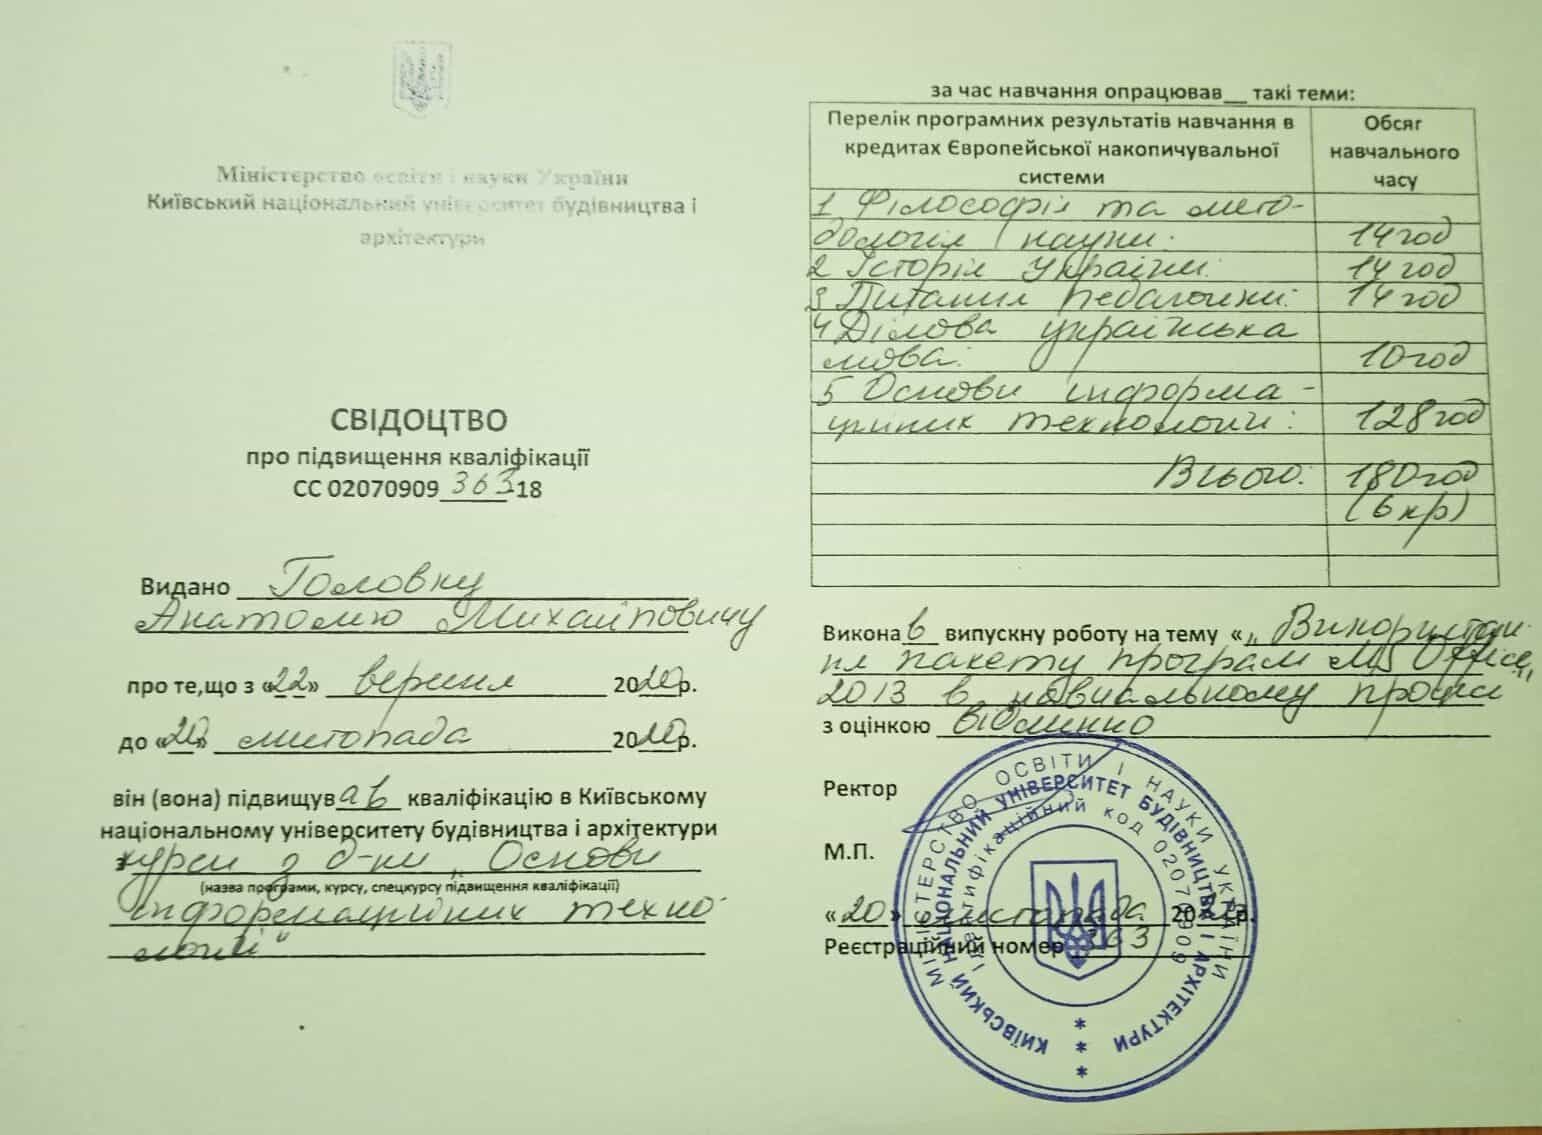 Міністерство освіти і науки України
Київський національний університет будівництва і
архітектури
СВІДОЦТВО
про підвищення кваліфікації
СС 02070909 363-18
Видано Головку
Анатолію Михайловичу
про те,що з «22» вересня 2020р.
до «20» листопада 2020р.
він (вона) підвищував кваліфікацію в Київському
національному університету будівництва і архітектури
з курси з д-ни „Основи
(назва програми, курсу, спецкурсу підвищення кваліфікації)
інформаційних техно-
логій“
за час навчання опрацював__ такі теми:
Перелік програмних результатів навчання в
кредитах Європейської накопичувальної
системи
Обсяг
навчального
часу
1 Філософія та мето-
дологія науки: 14 год
2 Історія України: 14 год
3 Питання педагогіки: 14 год
4 Ділова українська
мова: 10 год
5 Основи інформа-
ційних технологій: 128 год
Всього: 180 год
(6 кр)
Виконав випускну роботу на тему «„Використан-
ня пакету програм MS Office
2013 в навчальному процесі
з оцінкою відмінно
Ректор
М.П.
«20» листопада 2020р.
Реєстраційний номер 363
МІНІСТЕРСТВО ОСВІТИ І НАУКИ УКРАЇНИ
КИЇВСЬКИЙ НАЦІОНАЛЬНИЙ УНІВЕРСИТЕТ БУДІВНИЦТВА І АРХІТЕКТУРИ
Ідентифікаційний код 02070909
* * *